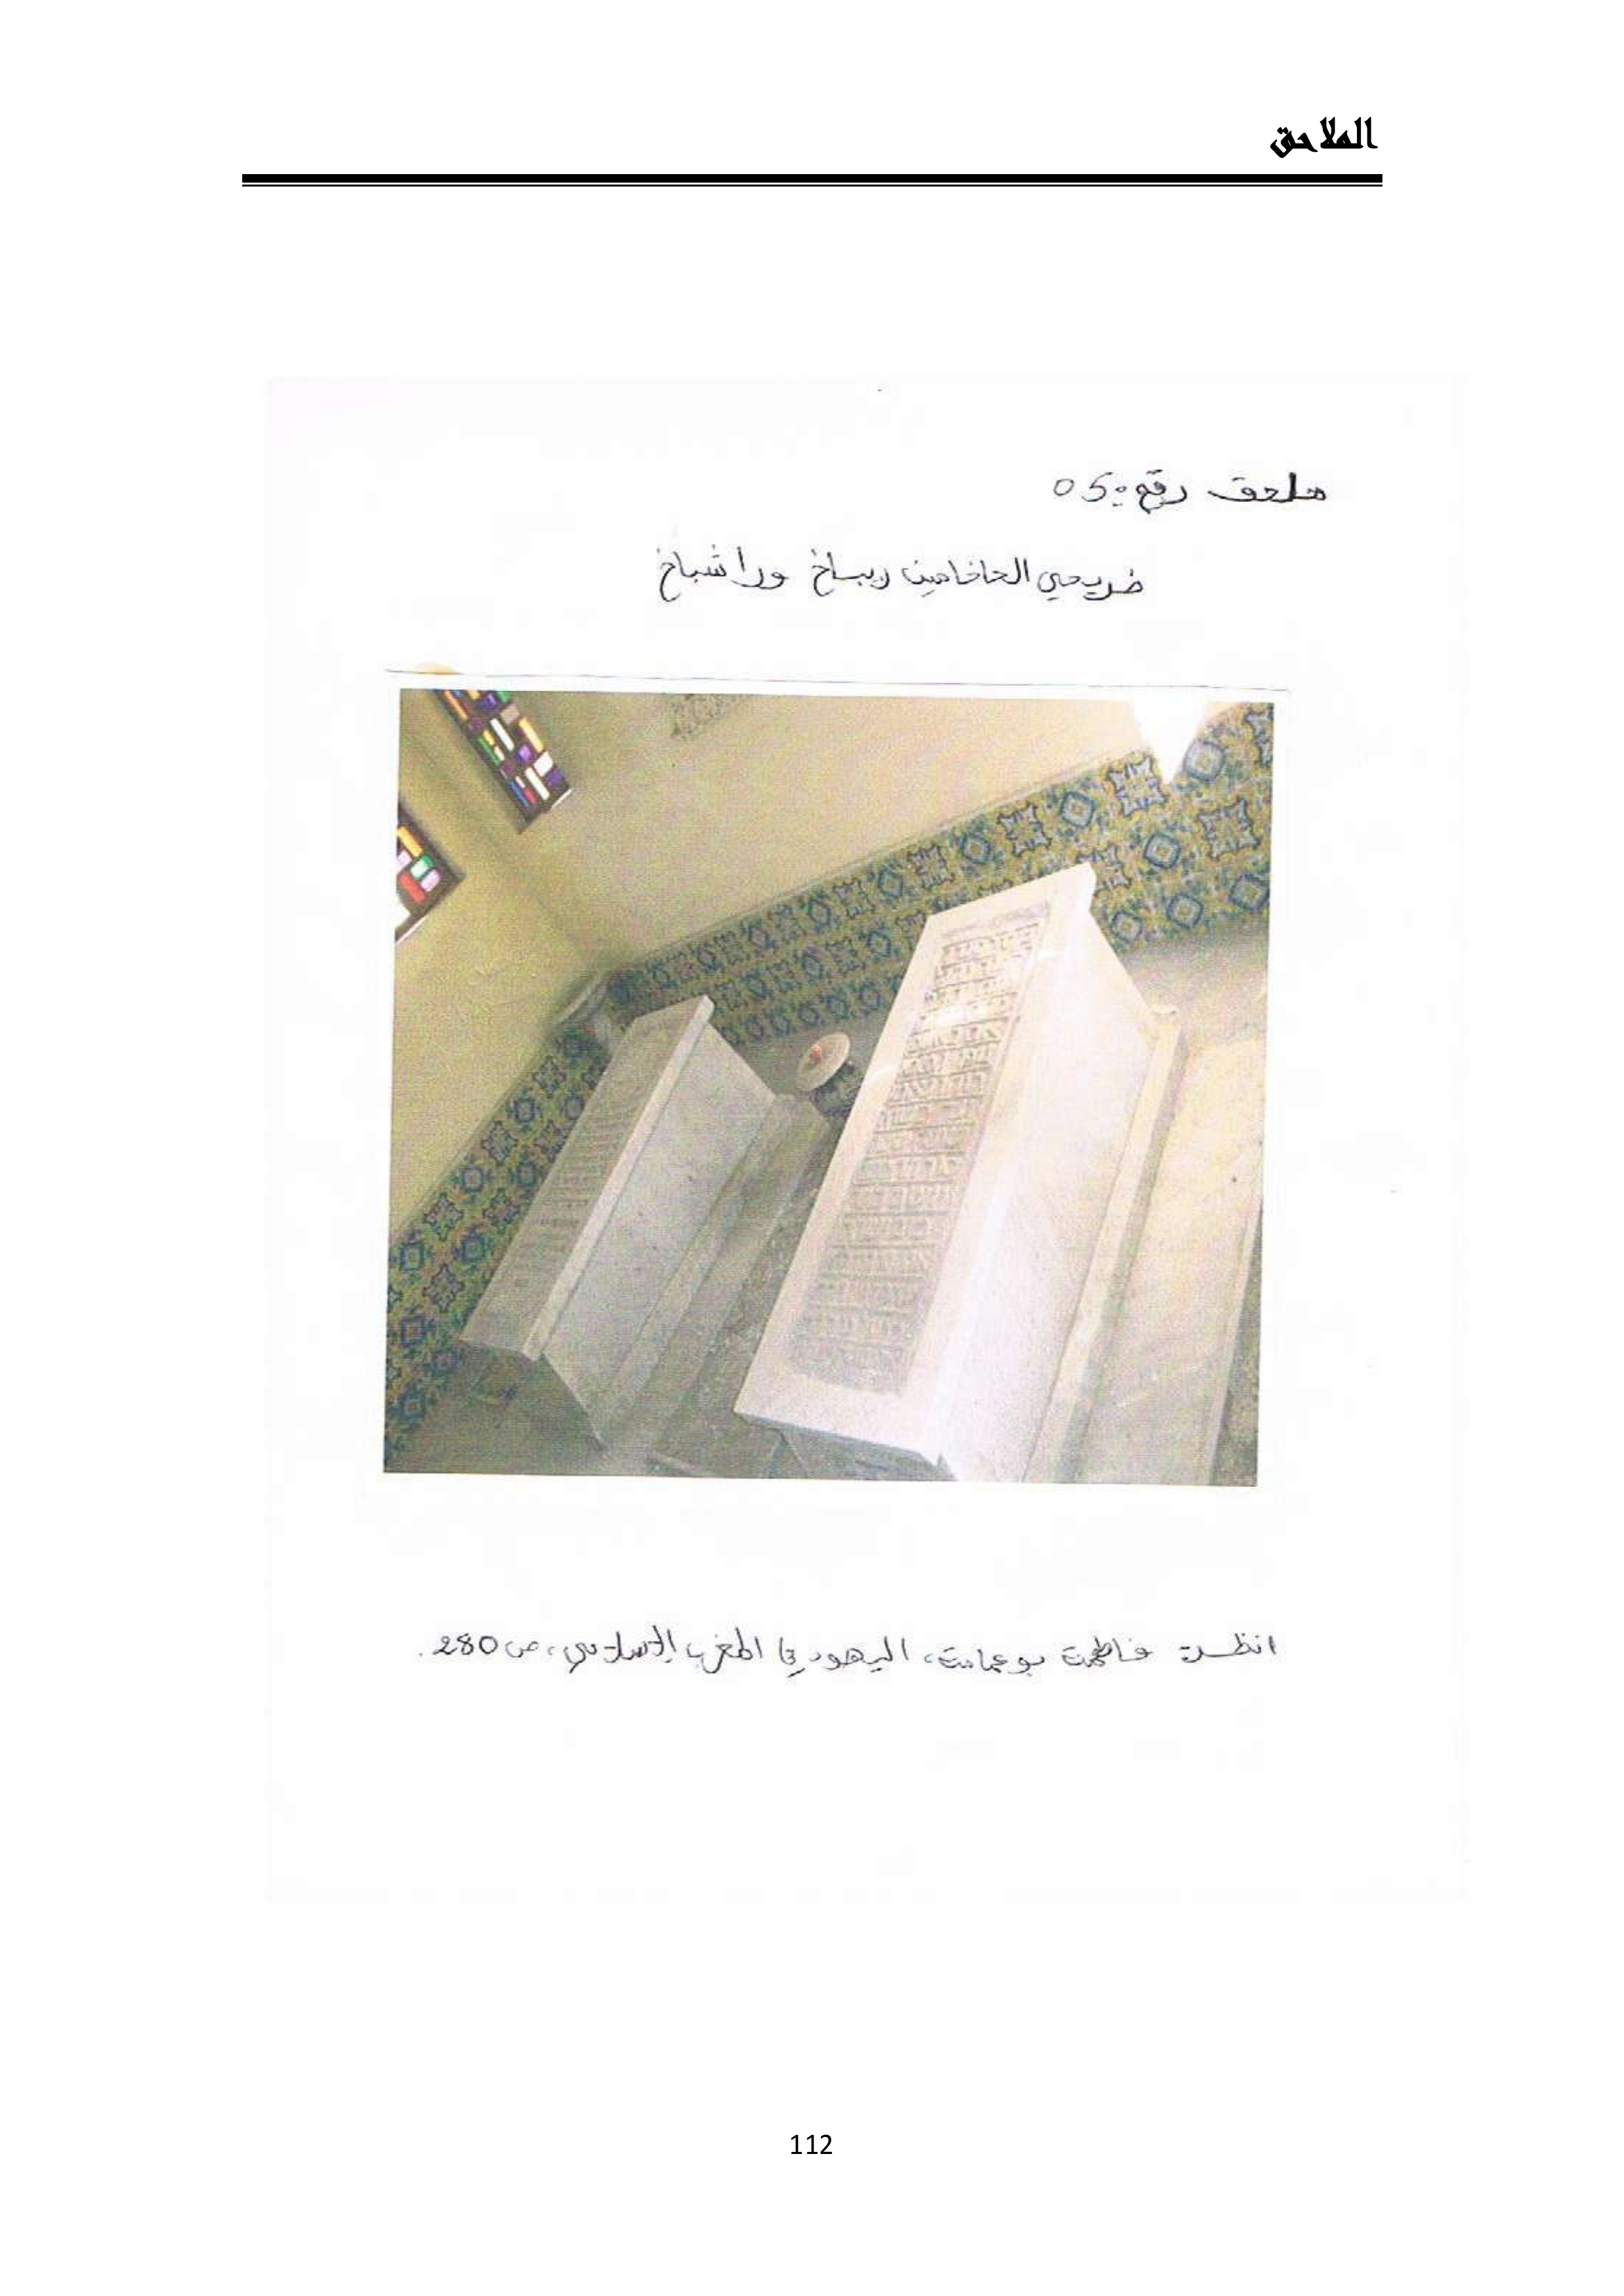 الملاحق
ملحق رقم: 05
ضريحي الحاخامين ريباخ وراشباخ
انظر: فاطمة بوعمامة، اليهود في المغرب الإسلامي، ص 280.
112